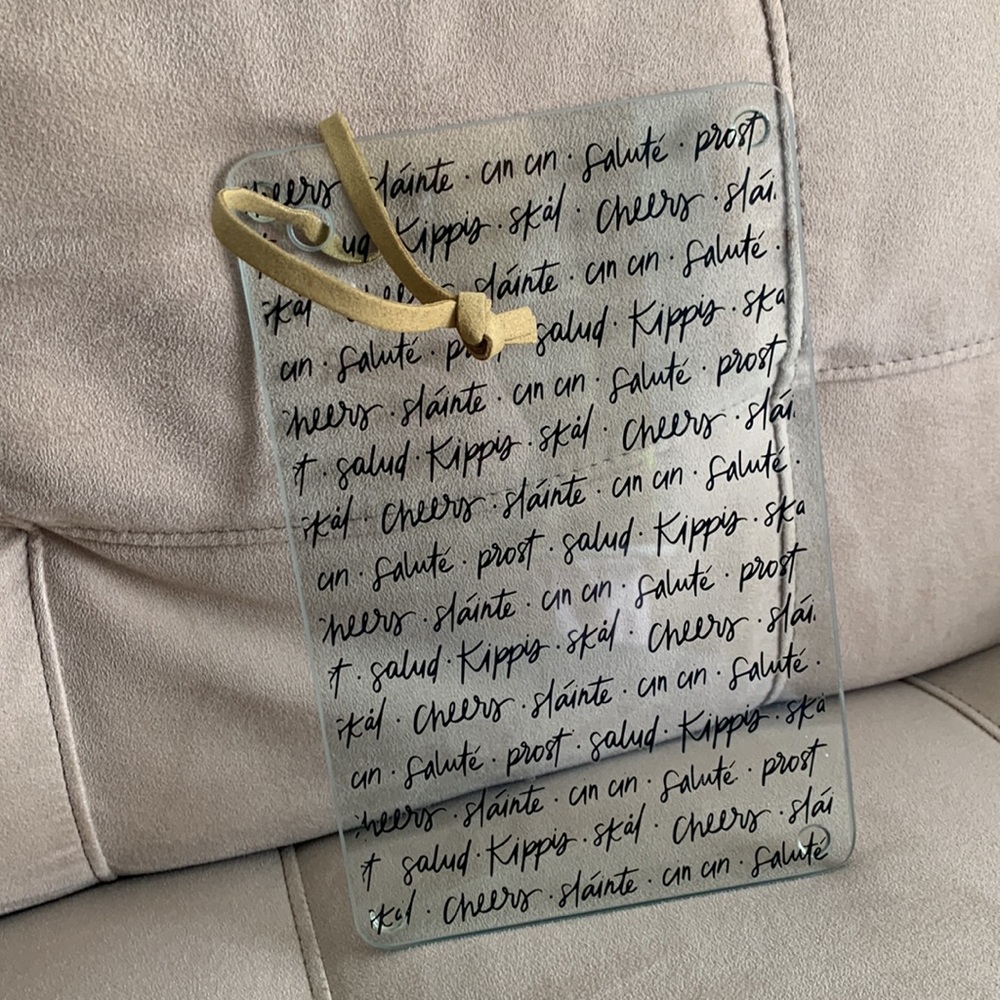 cheers sláinte · cin cin · saluté · prost
ud Kippis · skål · Cheers · slái
skål cheers sláinte · cin cin · saluté ·
cin · saluté · p salud · Kippis · ska
heers · sláinte · cin cin · saluté · prost
t · salud · Kippis · skål · Cheers · slái
skål · Cheers · sláinte · cin cin · saluté ·
cin · saluté · prost · salud · Kippis · ska
heers · sláinte · cin cin · saluté · prost
t · salud · Kippis · skål · Cheers · slái
skål · Cheers · sláinte · cin cin · saluté ·
cin · saluté · prost · salud · Kippis · ska
heers · sláinte · cin cin · saluté · prost
t salud · Kippis · skål · Cheers · slái
skål · Cheers · sláinte · cin cin · saluté